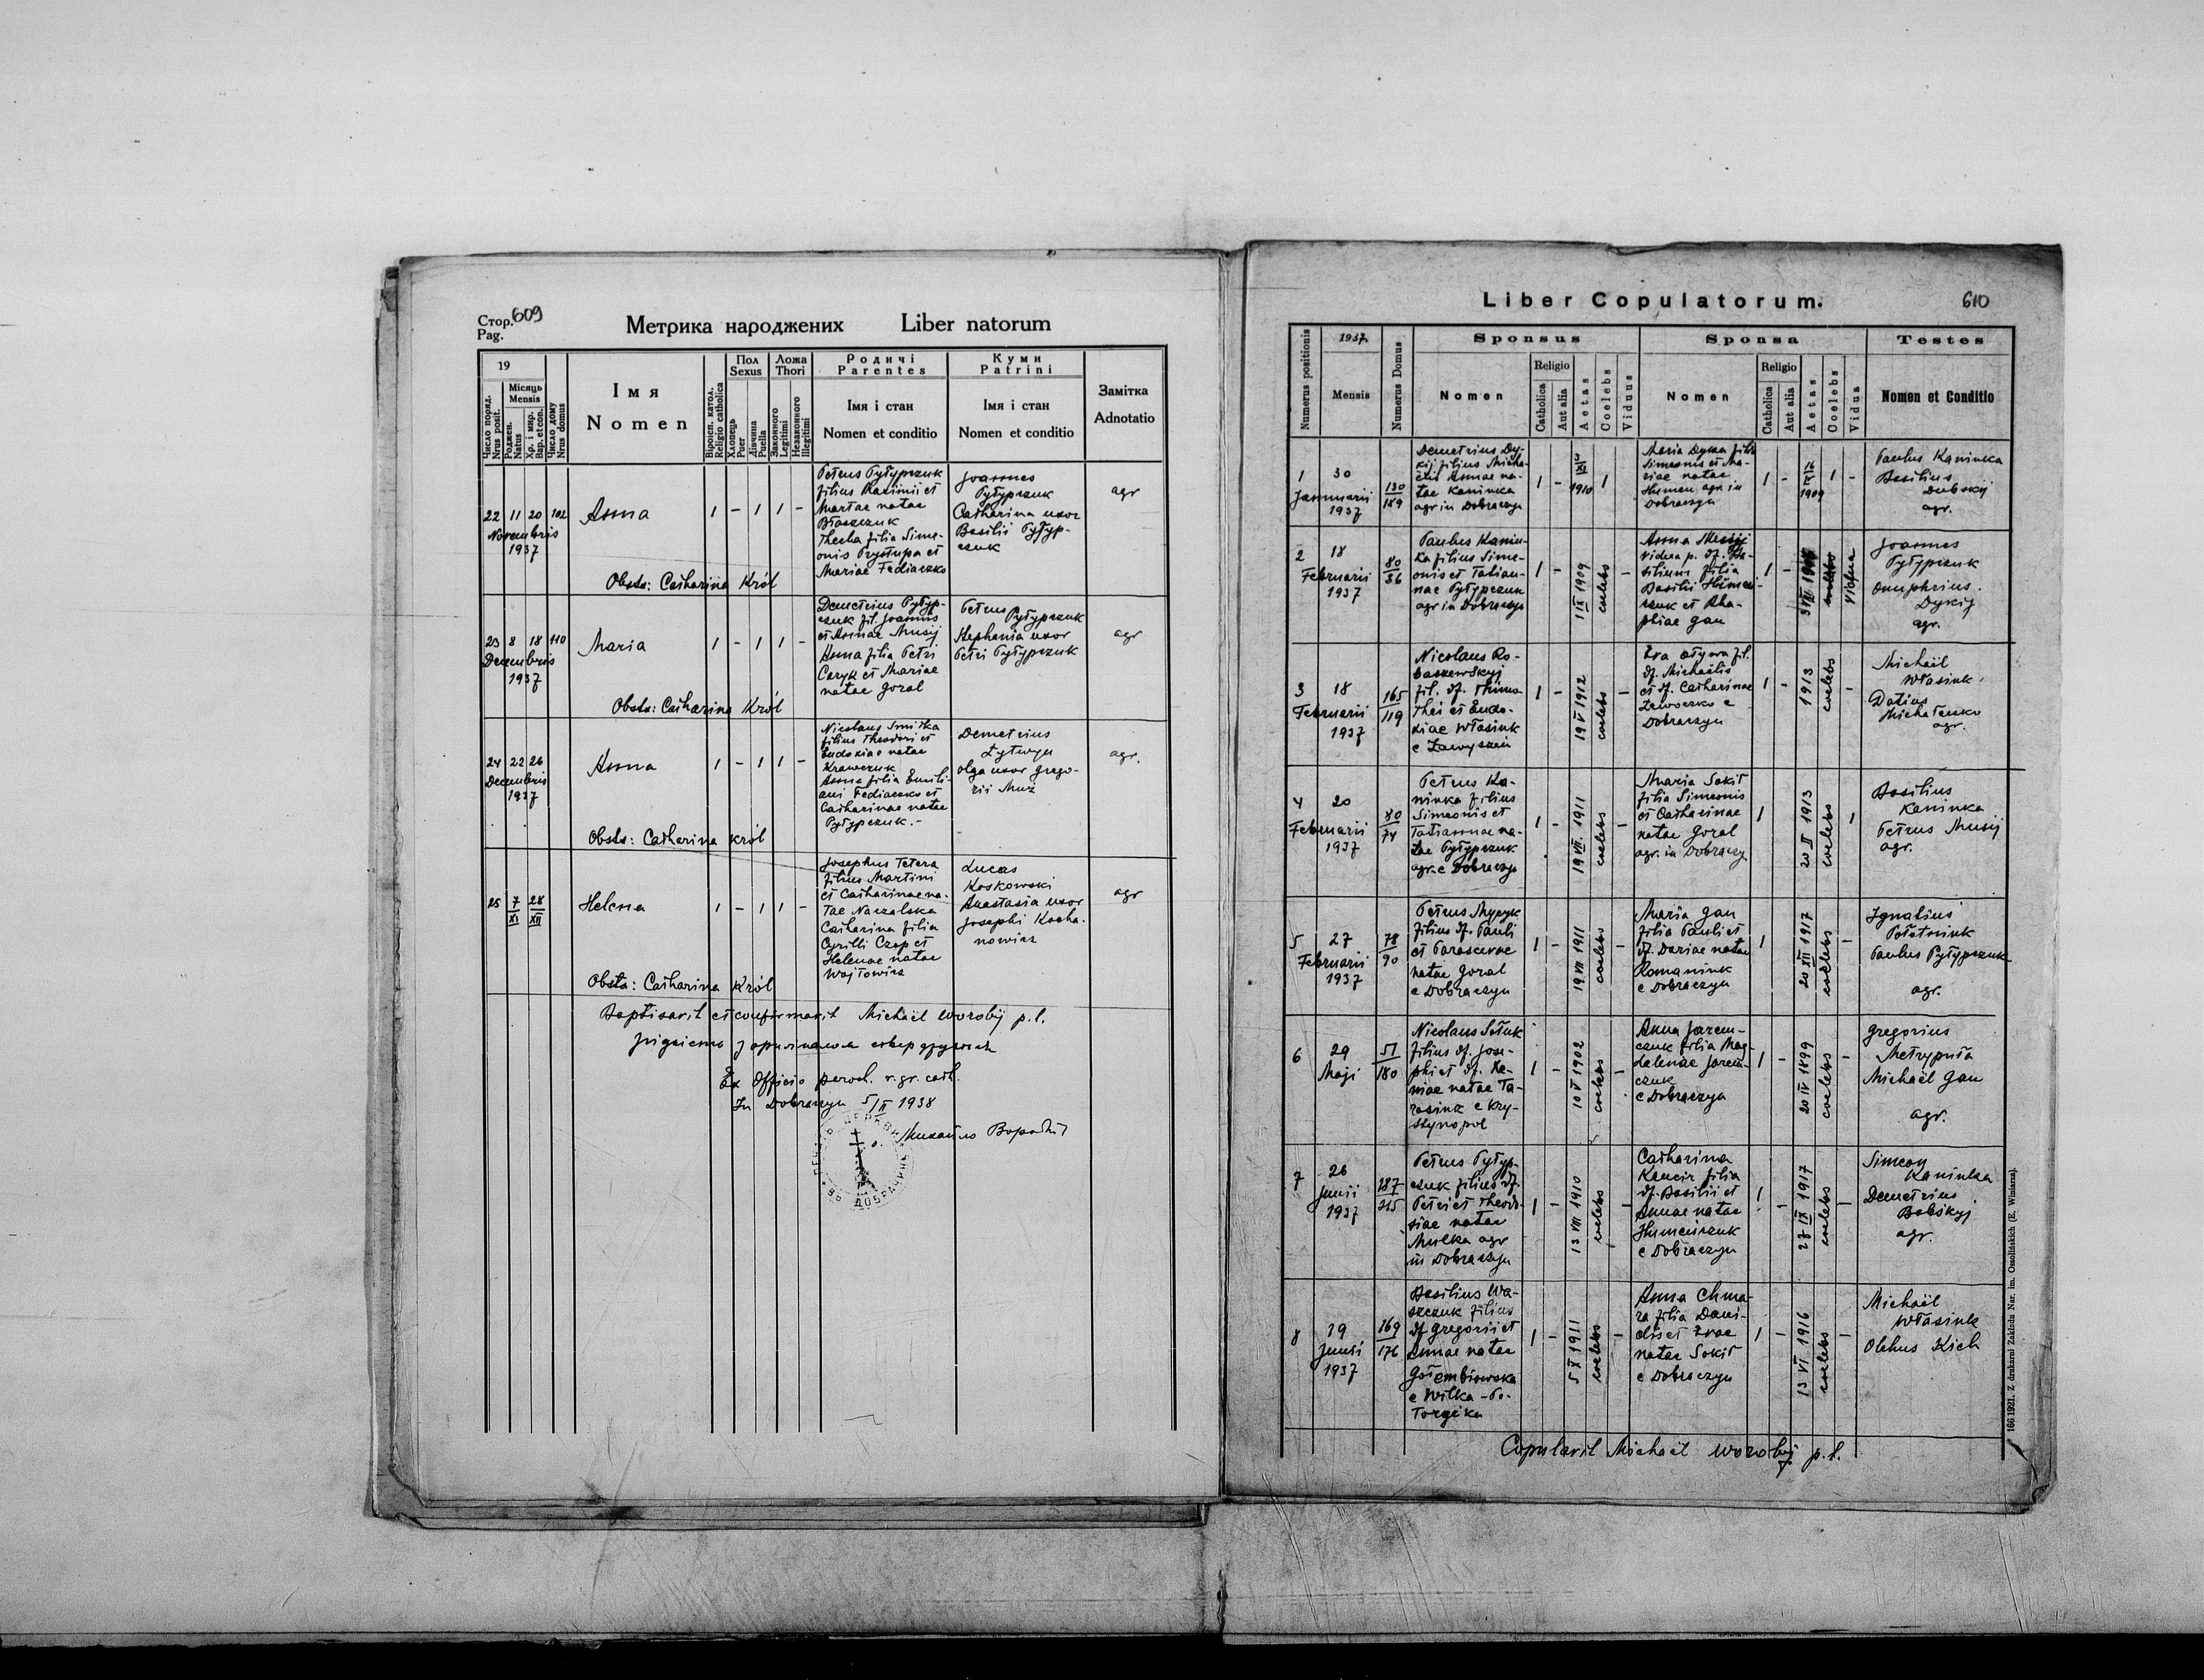 Стор. 609
Pag.
Метрика народжених Liber natorum
19
Число поряд.
Nrus posit.
Місяць
Mensis
Роджен.
Natus
Хр. і мир.
Bap. et con.
Число дому
Nrus domus
Імя
Nomen
Віроісп. катол.
Religio catholica
Пол
Sexus
Хлопець
Puer
Дівчина
Puella
Ложа
Thori
Законного
Legitimi
Незаконного
Illegitimi
Родичі
Parentes
Імя і стан
Nomen et conditio
Куми
Patrini
Імя і стан
Nomen et conditio
Замітка
Adnotatio
22 11 20 102
Novembris
1937
Anna
1 - 1 1 -
Petrus Pyłypczuk
filius Maximi et
Martae natae
Błaszczuk
Thecla filia Sime-
onis Prystupa et
Mariae Fediaczko
Joannes
Pyłypczuk
Catharina uxor
Basilii Pyłyp-
czuk
agr
Obstx: Catharina Król
23 8 18 110
Decembris
1937
Maria
1 - 1 1 -
Demetrius Pyłyp-
czuk fil. Joannis
et Annae Musij
Anna filia Petri
Caryk et Mariae
natae Goral
Petrus
Pyłypczuk
Stephania uxor
Petri Pyłypczuk
agr
Obstx: Catharina Król
24 22 26
Decembris
1937
Anna
1 - 1 1 -
Nicolaus Smitka
filius Theodori et
Eudoxiae natae
Krawczuk
Anna filia Emili-
ani Fediaczko et
Catharinae natae
Pyłypczuk.-
Demetrius
Łytwyn
Olga uxor Grego-
rii Muz
agr.
Obstx: Catharina Król
25 7/XI 28/XII
Helena
1 - 1 1 -
Josephus Tetera
filius Martini
et Catharinae na-
tae Naczalska
Catharina filia
Cyrilli Czop et
Helenae natae
Wojtowicz
Lucas
Koskowski
Anastasia uxor
Josephi Kocha-
nowicz
agr
Obstx: Catharina Król
Baptisavit et confirmavit Michaël Worobij p.l.
Згідність з оригіналом стверджують
Ex Officio paroch. r. gr. cath.
In Dobraczyn 5/II 1938
о. Михайло Воробій
ДОБРАЧИНѢ
Liber Copulatorum.
610
Numerus positionis
1937
Mensis
Numerus Domus
Sponsus
Nomen
Religio
Catholica
Aut alia
Aetas
Coelebs
Viduus
Sponsa
Nomen
Religio
Catholica
Aut alia
Aetas
Coelebs
Vidua
Testes
Nomen et Conditio
1 30
Januarii
1937
130/189
Demetrius Dy-
kij filius Micha-
elis Annae na-
tae Kaninka
agr in Dobraczyn
1 - XI 1910 1
Maria Dyka filia
Simeonis et Ma-
riae natae
Humen agr in
Dobraczyn
1 - 16 IX 1909 1 -
Paulus Kaninka
Basilius
Dubskij
agr.
2 18
Februarii
1937
80/36
Paulus Kanin-
ka filius Sime-
onis et Tatian-
nae Pyłypczuk
agr in Dobraczyn
1 - 1 IX 1909 coelebs -
Anna Musij
vidua p. df. Ba-
silium filia
Basilii Humen-
czuk et Aha-
phiae Gan
1 - vidua
Joannes
Pyłypczuk
Onuphrius
Dykij
agr.
3 18
Februarii
1937
165/119
Nicolaus Ro-
baszewskyj
fil. df. Thimo-
thei et Eudo-
xiae Własiuk
e Zawyszeń
1 - 19 V 1912 coelebs -
Eva
df. Michaëlis
et df. Catharinae
e
Dobraczyn
1 - 1913 coelebs -
Michaël
Własiuk
Datius
Michałenko
agr.
4 20
Februarii
1937
80/74
Petrus Ka-
ninka filius
Simeonis et
Tatiannae na-
tae Pyłypczuk
agr. e Dobraczyn
1 - 19 VII 1911 coelebs -
Maria Sokił
filia Simeonis
et Catharinae
natae Goral
agr. in Dobraczyn
1 20 II 1913 coelebs 1
Basilius
Kaninka
Petrus Musij
agr.
5 27
Februarii
1937
78/90
Petrus Mycyk
filius df. Pauli
et Parascevae
natae Goral
e Dobraczyn
1 - 19 VII 1911 coelebs -
Maria Gan
filia Pauli et
df. Dariae natae
Romaniuk
e Dobraczyn
1 20 XII 1917 coelebs -
Ignatius
Połetniuk
Paulus Pyłypczuk
agr.
6 29
Maji
51/180
Nicolaus Sełuk
filius df. Jose-
phi et df. Xe-
niae natae Ta-
rasiuk e Kry-
stynopol
1 - 10 V 1902 coelebs -
Anna Jarem-
czuk filia Mag-
dalenae Jarem-
czuk
e Dobraczyn
1 - 20 IV 1899 coelebs -
Gregorius
Metrypuła
Michaël Gan
agr.
7 26
Junii
1937
287/215
Petrus Pyłyp-
czuk filius df.
Petri et Theodo-
siae natae
Mulka agr
in Dobraczyn
1 - 13 VIII 1910 coelebs -
Catharina
Kancir filia
df. Basilii et
Annae natae
Humeńczuk
e Dobraczyn
1 - 27 IX 1917 coelebs -
Simeon
Kaninka
Demetrius
Bobskyj
agr.
8 19
Junii
1937
169/176
Basilius Wa-
szczuk filius
df Gregorii et
Annae natae
Gołembiowska
e Wilka-Po-
Torycka
1 - 5 X 1911 coelebs -
Anna Chma-
ra filia Dani-
elis et Evae
natae Sokił
e Dobraczyn
1 - 13 VI 1916 coelebs -
Michaël
Własiuk
Olchus Kich
Copulavit Michaël Worobij p.l.
166 1921. Z drukarni Zakładu Nar. im. Ossolińskich (E. Winiarza).